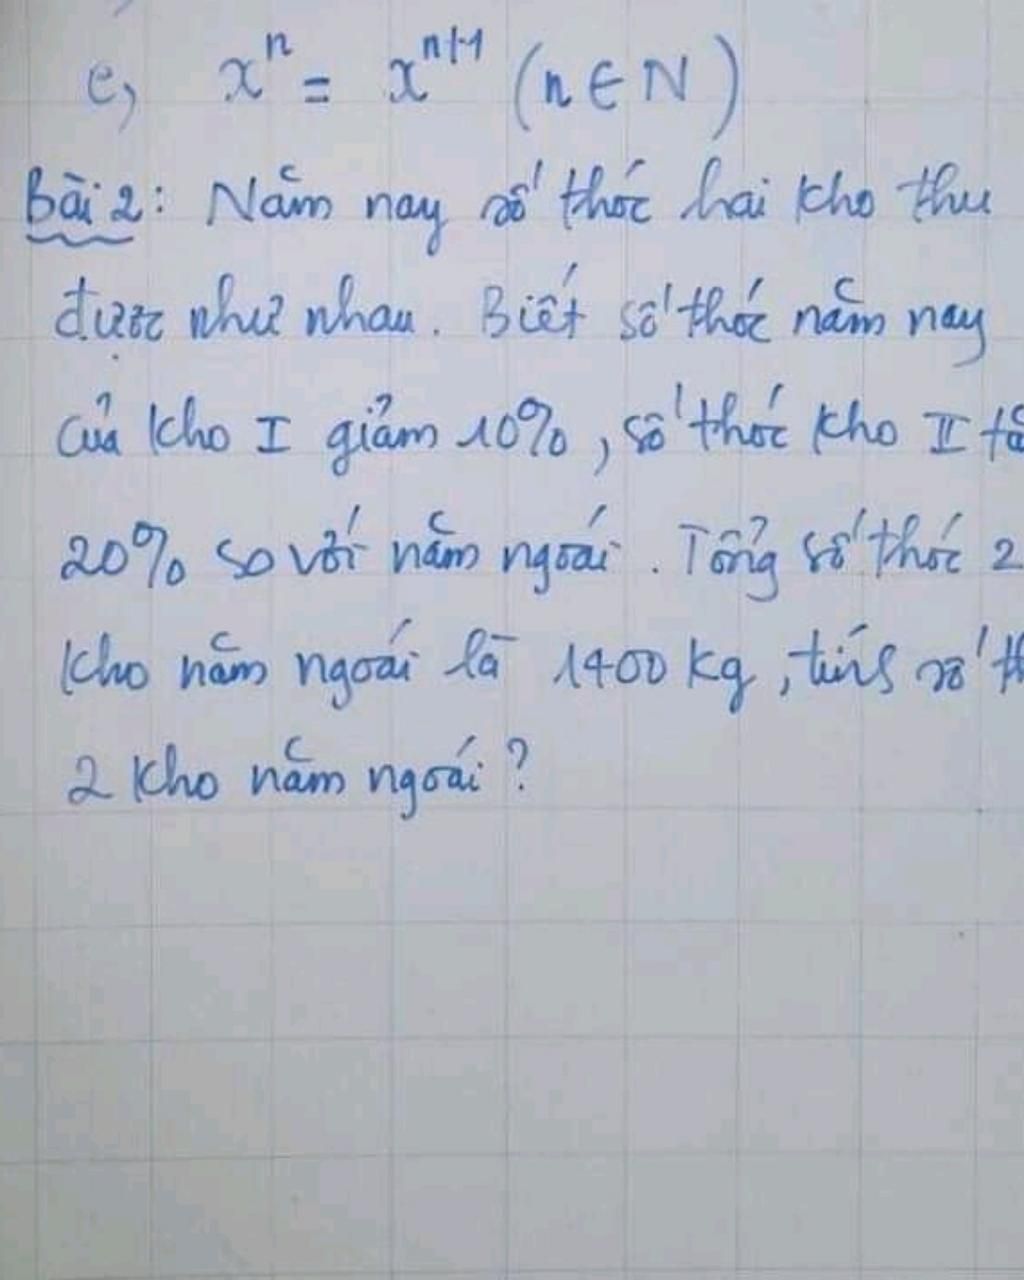 e, xⁿ = xⁿ⁺¹ (n ∈ N)
Bài 2: Năm nay số thóc hai kho thu
được như nhau. Biết số thóc năm nay
của kho I giảm 10%, số thóc kho II
20% so với năm ngoái. Tổng số thóc 2
kho năm ngoái là 1400 kg, số
2 kho năm ngoái?